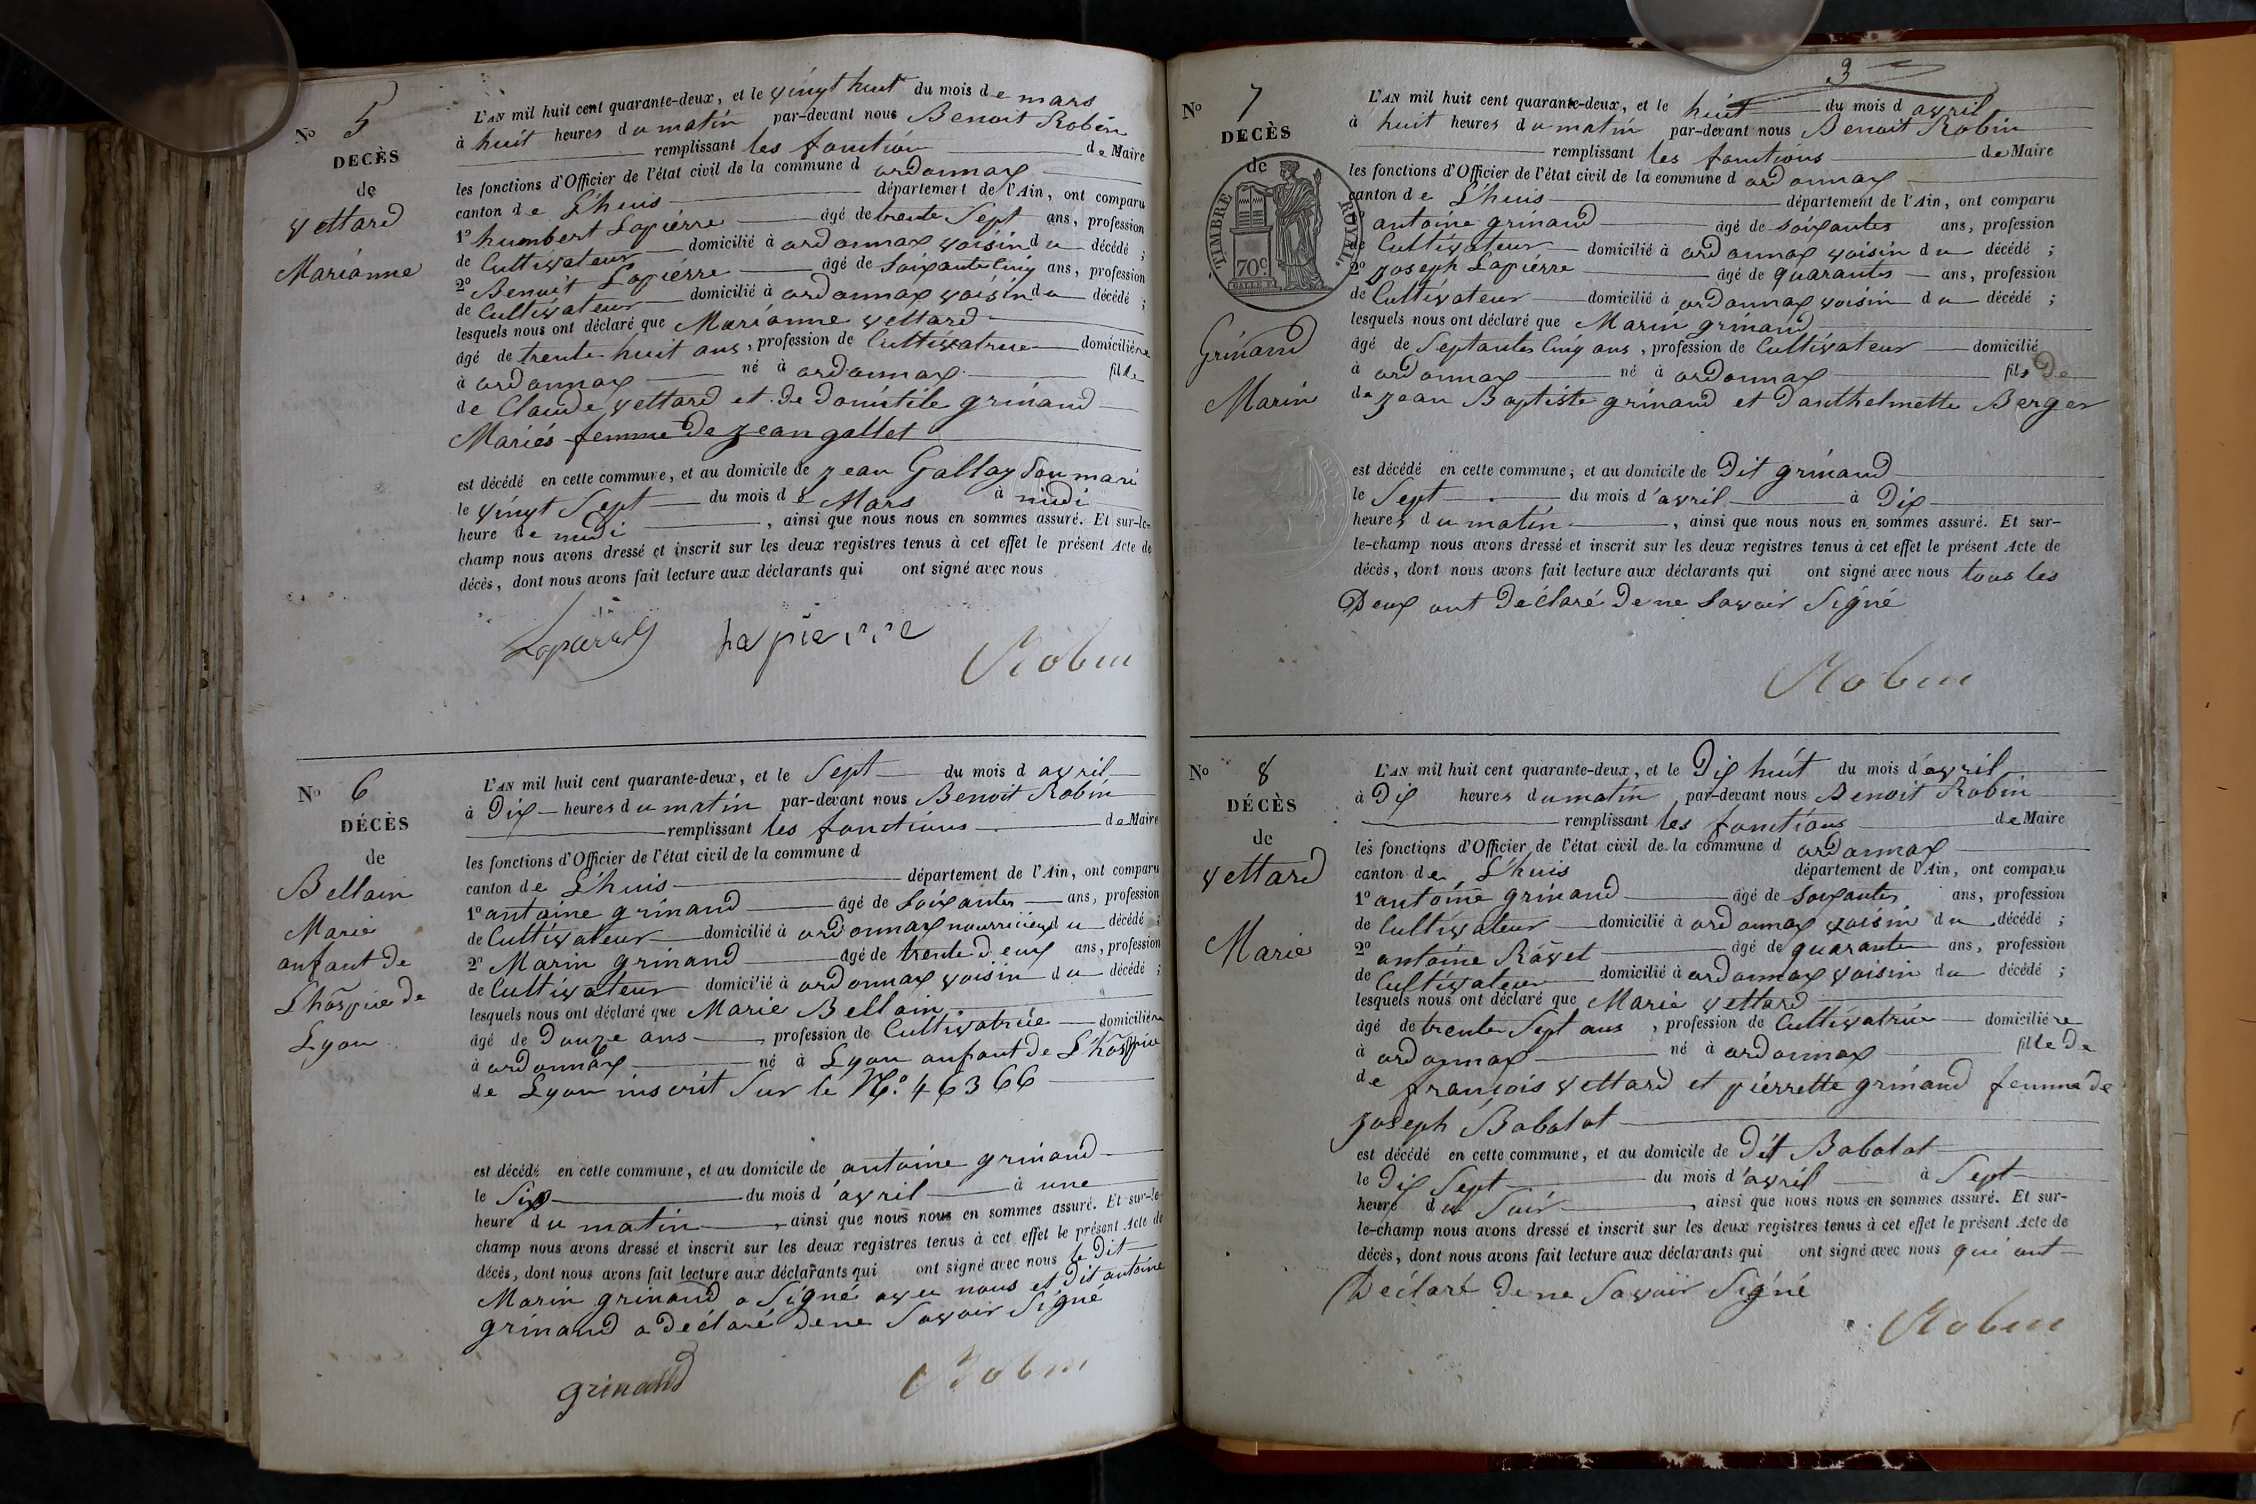 No 5
DECÈS
de
vettard
Marianne
L'AN mil huit cent quarante-deux, et le vingt huit du mois de mars
à huit heures du matin par-devant nous Benoit Robin
remplissant les fonction de Maire
les fonctions d'Officier de l'état civil de la commune d ordonnax
canton de L'huis département de l'Ain, ont comparu
1o humbert Lapiérre âgé de trente Sept ans, profession
de Cultivateur domicilié à ordonnax voisin du décédé ;
2o Benoit Lapiérre âgé de Soixante Cinq ans, profession
de Cultivateur domicilié à ordonnax voisin du décédé ;
lesquels nous ont déclaré que Marianne vettard
âgé de trente huit ans, profession de Cultivatrice domiciliére
à ordonnax né à ordonnax fille
de Claude vettard et de Domitile grinand
Mariés femme De Jean gallet
est décédé en cette commune, et au domicile de Jean Gallay Son mari
le vingt Sept du mois de Mars à midi
heure de midi, ainsi que nous nous en sommes assuré. Et sur-le-
champ nous avons dressé et inscrit sur les deux registres tenus à cet effet le présent Acte de
décès, dont nous avons fait lecture aux déclarants qui ont signé avec nous
Lapierre Robin
No 6
DÉCÈS
de
Bellain
Marie
anfant de
L'hospice de
Lyon
L'AN mil huit cent quarante-deux, et le Sept du mois d avril
à Dix heures du matin par-devant nous Benoit Robin
remplissant les fonctions de Maire
les fonctions d'Officier de l'état civil de la commune d
canton de L'huis département de l'Ain, ont comparu
1o antoine grinand âgé de Soixantes ans, profession
de Cultivateur domicilié à ordonnax nourricier du décédé ;
2o Marin grinand âgé de trente deux ans, profession
de Cultivateur domicilié à ordonnax voisin du décédé ;
lesquels nous ont déclaré que Marie Bellain
âgé de Douze ans, profession de Cultivatrice domiciliére
à ordonnax né à Lyon anfant de L'hospice
de Lyon inscrit Sur le No. 46366
est décédé en cette commune, et au domicile de antoine grinand
le Six du mois d'avril à une
heure du matin, ainsi que nous nous en sommes assuré. Et sur-le-
champ nous avons dressé et inscrit sur les deux registres tenus à cet effet le présent Acte de
décès, dont nous avons fait lecture aux déclarants qui ont signé avec nous le Dit
Marin grinand a Signé avec nous et Dit antoine
grinand a déclaré De ne Savoir Signé
grinand Robin
3
No 7
DECÈS
de
TIMBRE ROYAL
70c
Grinand
Marin
L'AN mil huit cent quarante-deux, et le huit du mois d avril
à huit heures du matin par-devant nous Benoit Robin
remplissant les fonctions de Maire
les fonctions d'Officier de l'état civil de la commune d ordonnax
canton de L'huis département de l'Ain, ont comparu
antoine grinand âgé de soixantes ans, profession
de Cultivateur domicilié à ordonnax voisin du décédé ;
2o Joseph Lapiérre âgé de quarantes ans, profession
de Cultivateur domicilié à ordonnax voisin du décédé ;
lesquels nous ont déclaré que Marin grinand
âgé de Septantes Cinq ans, profession de Cultivateur domicilié
à ordonnax né à ordonnax fils De
de Jean Baptiste grinand et Danthelmette Berger
est décédé en cette commune, et au domicile de Dit grinand
le Sept du mois d'avril à Dix
heures du matin, ainsi que nous nous en sommes assuré. Et sur-
le-champ nous avons dressé et inscrit sur les deux registres tenus à cet effet le présent Acte de
décès, dont nous avons fait lecture aux déclarants qui ont signé avec nous tous les
Deux ont Déclaré De ne Savoir Signé
Robin
No 8
DÉCÈS
de
vettard
Marie
L'AN mil huit cent quarante-deux, et le Dix huit du mois d'avril
à Dix heures du matin par-devant nous Benoit Robin
remplissant les fonctions de Maire
les fonctions d'Officier de l'état civil de la commune d ordonnax
canton de L'huis département de l'Ain, ont comparu
1o antoine grinand âgé de Soixantes ans, profession
de Cultivateur domicilié à ordonnax voisin du décédé ;
2o antoine Ravet âgé de quarante ans, profession
de Cultivateur domicilié à ordonnax voisin du décédé ;
lesquels nous ont déclaré que Marie vettard
âgé de trente Sept ans, profession de Cultivatrice domiciliére
à ordonnax né à ordonnax fille De
de françois vettard et piérrette grinand femme De
Joseph Babolat
est décédé en cette commune, et au domicile de Dit Babolat
le Dix Sept du mois d'avril à Sept
heure du Soir, ainsi que nous nous en sommes assuré. Et sur-
le-champ nous avons dressé et inscrit sur les deux registres tenus à cet effet le présent Acte de
décès, dont nous avons fait lecture aux déclarants qui ont signé avec nous qui ont
Déclaré De ne Savoir Signé
Robin